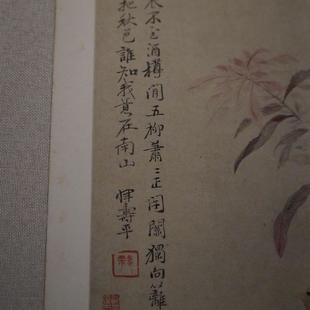 衣不至酒樽閒五柳蕭〻正閉關獨向籬
把秋色誰知我意在南山 惲壽平